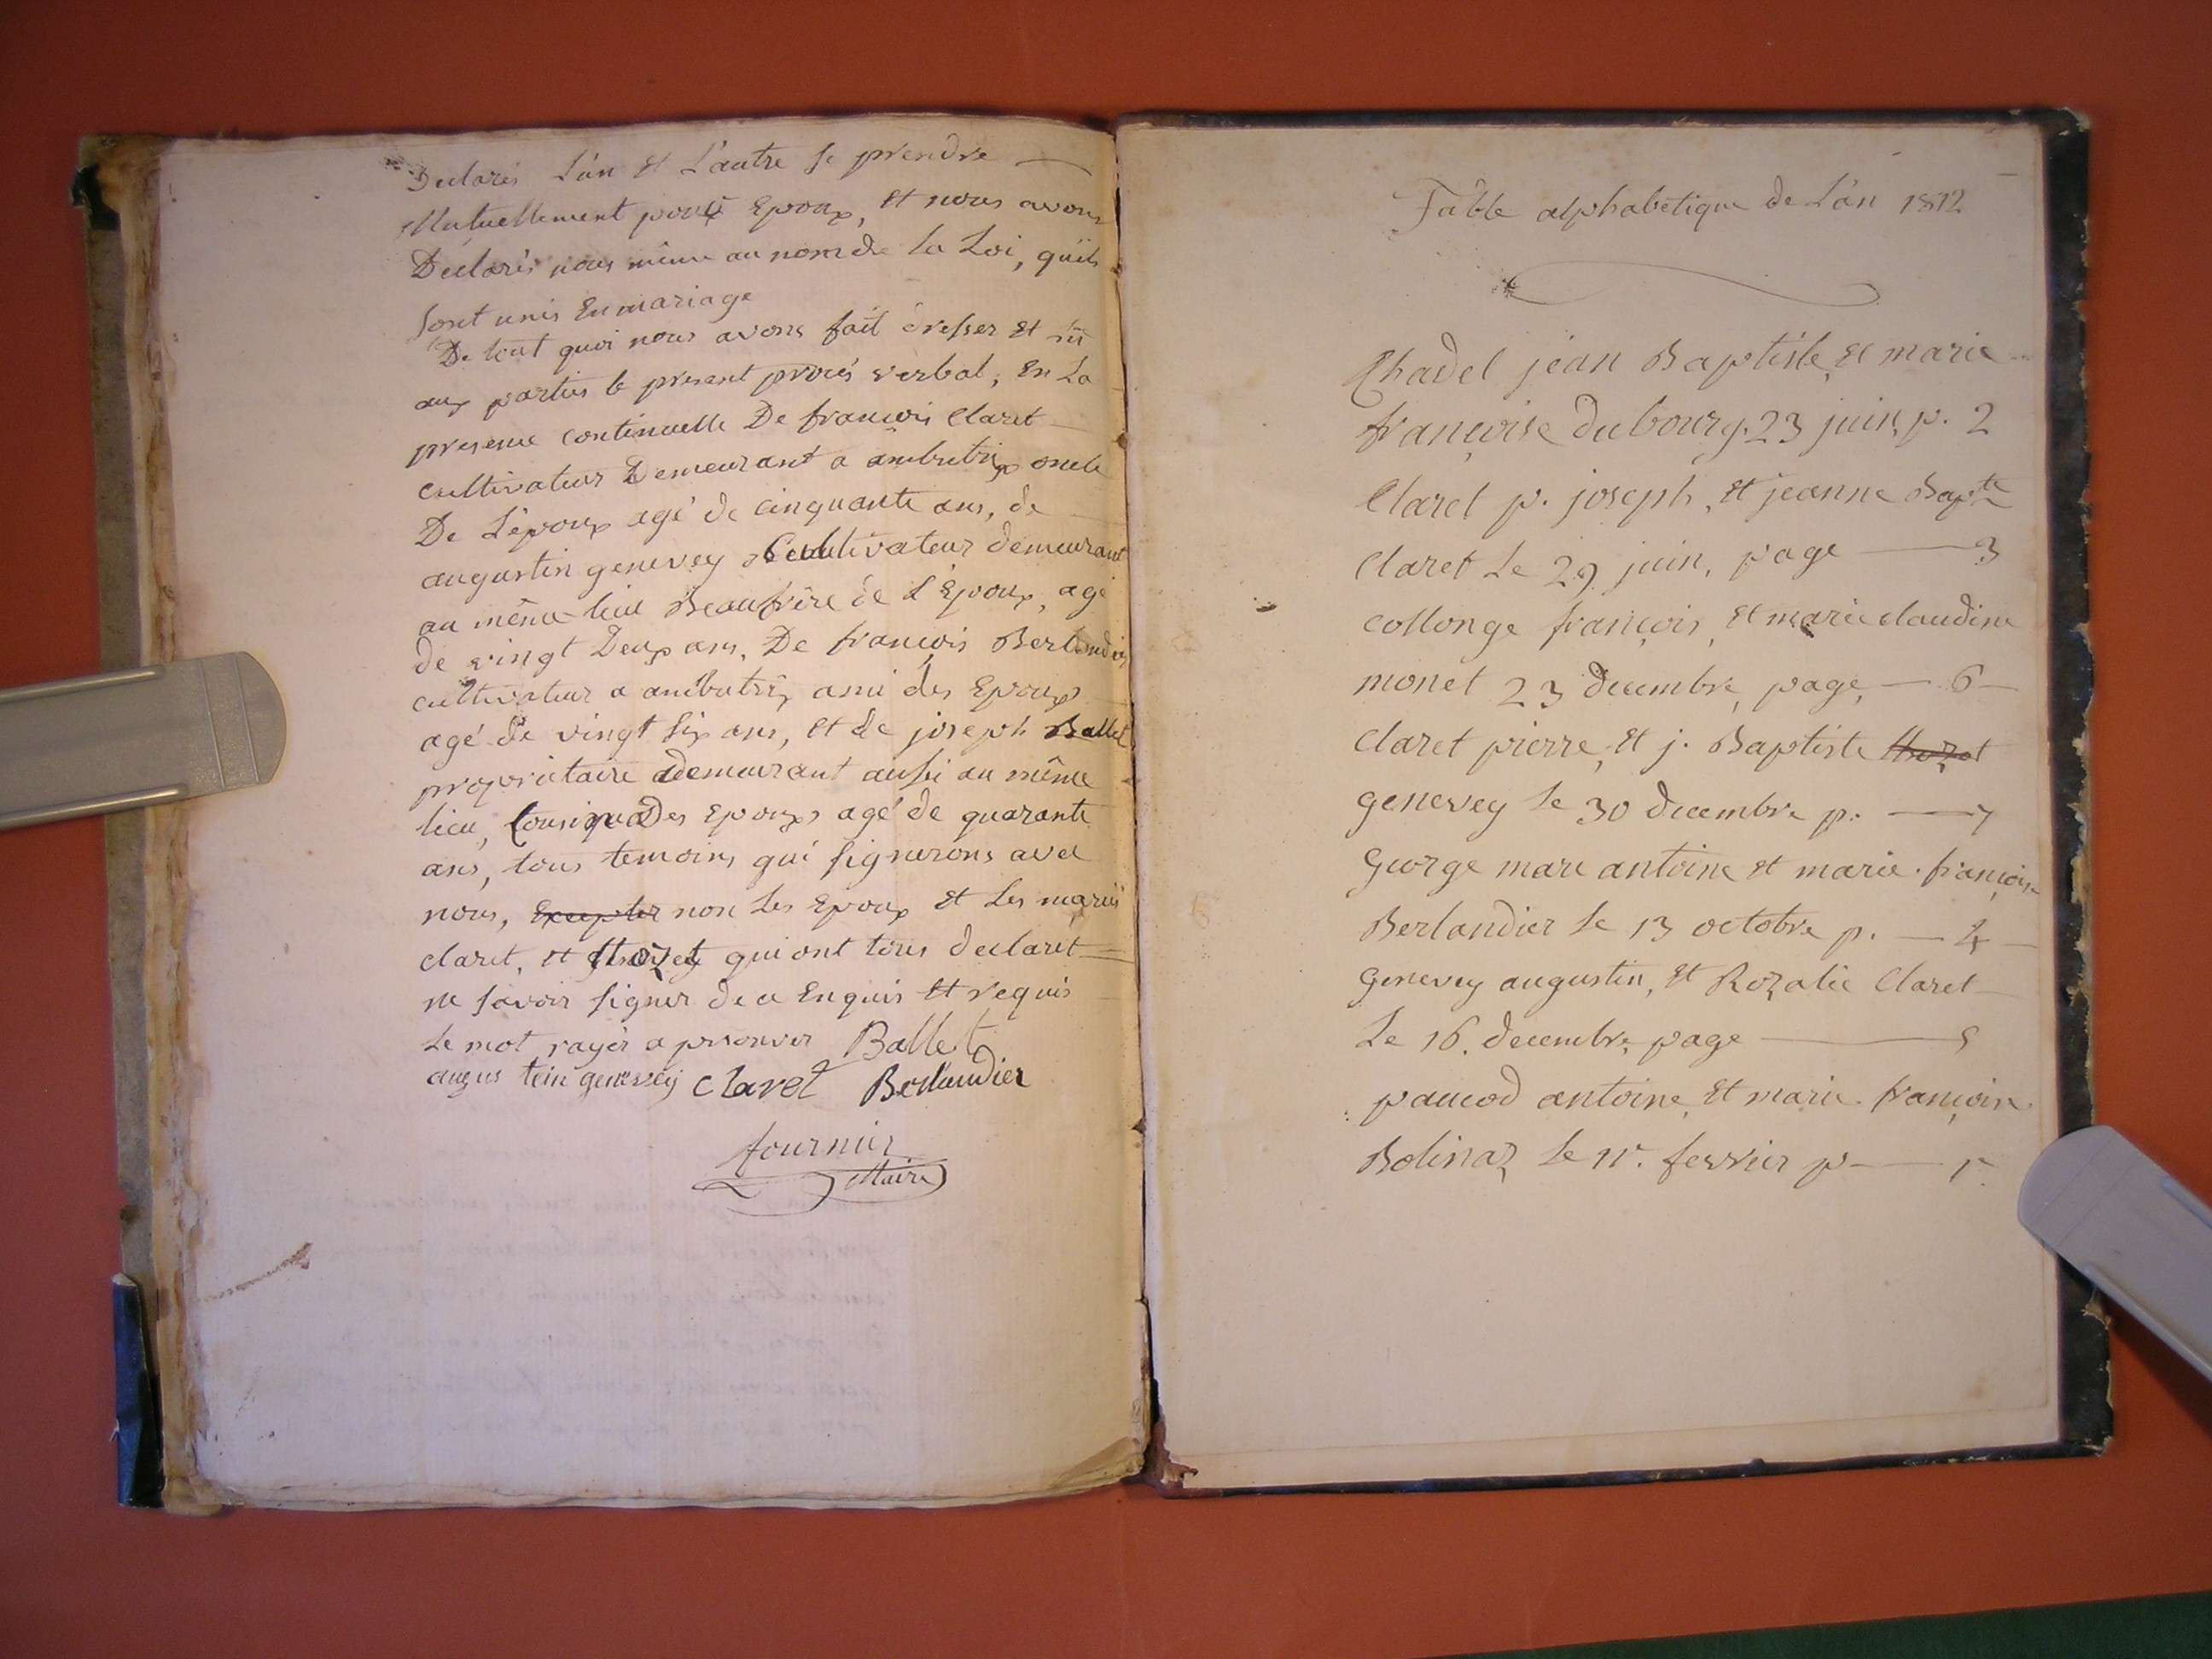 Declarés L'un et L'autre se prendre
Mutuellement pour Epoux, et nous avons
Declarés nous même au nom de la Loi, qu'ils
sont unis En mariage
De tout quoi nous avons fait dresser et lu
aux parties le present procés verbal, En La
presence continuelle De françois Claret
cultivateur Demeurant a ambutrix oncle
De L'époux agé de cinquante ans, de
augustin genevey Cultivateur demeurant
au même lieu Beaufrére de L'Epoux, agé
de vingt Deux ans, De françois Berlandier
cultivateur a ambutrix ami des Epoux
agé de vingt six ans, et de joseph Ballet
proprietaire demeurant aussi au même
lieu, Cousin Des Epoux agé de quarante
ans, tous temoins qui signerons avec
nous, Excepter non Les Epoux et Les
claret, et qui ont tous declaret
ne savoir signer de ce Enquis et requis
Le mot rayér a Ballet
augus tein genevey Claret Berlandier
fournier
Maire
Table alphabetique de L'an 1812
Chadel jean Baptiste, et marie
françoise dubourg. 23 juin, p. 2
Claret p. joseph, et jeanne Bapte
Claret Le 29 juin, page 3
collonge françois, et marie claudine
monet 23 decembre, page, 6
Claret pierre, et j. Baptiste
genevey le 30 decembre p. 7
George marc antoine et marie françoise
Berlandier le 13 octobre p. 4
Genevey augustin, et Rozalie Claret
Le 16. decembre page 5
paucod antoine, et marie françoise
Bolinaz Le 11r. fevrier p 1r.